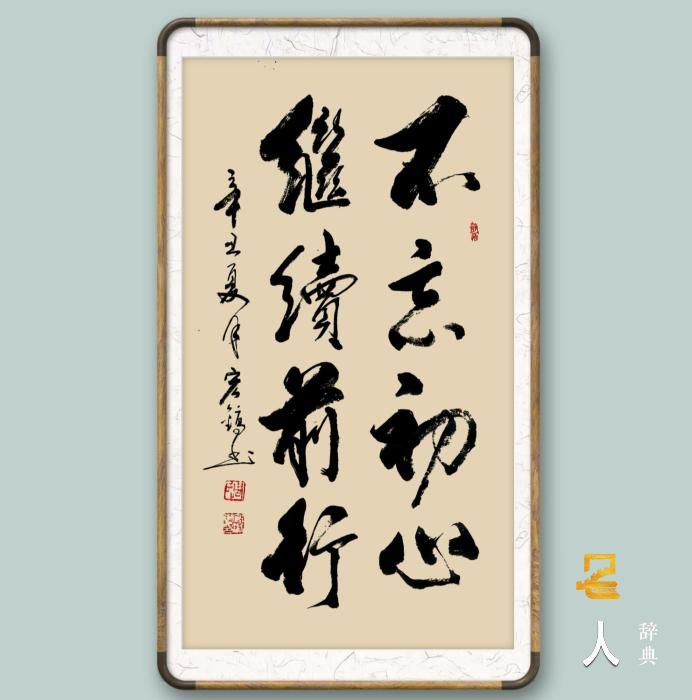 不忘初心
繼續前行
辛丑夏月宏鎬书
名人
辞典